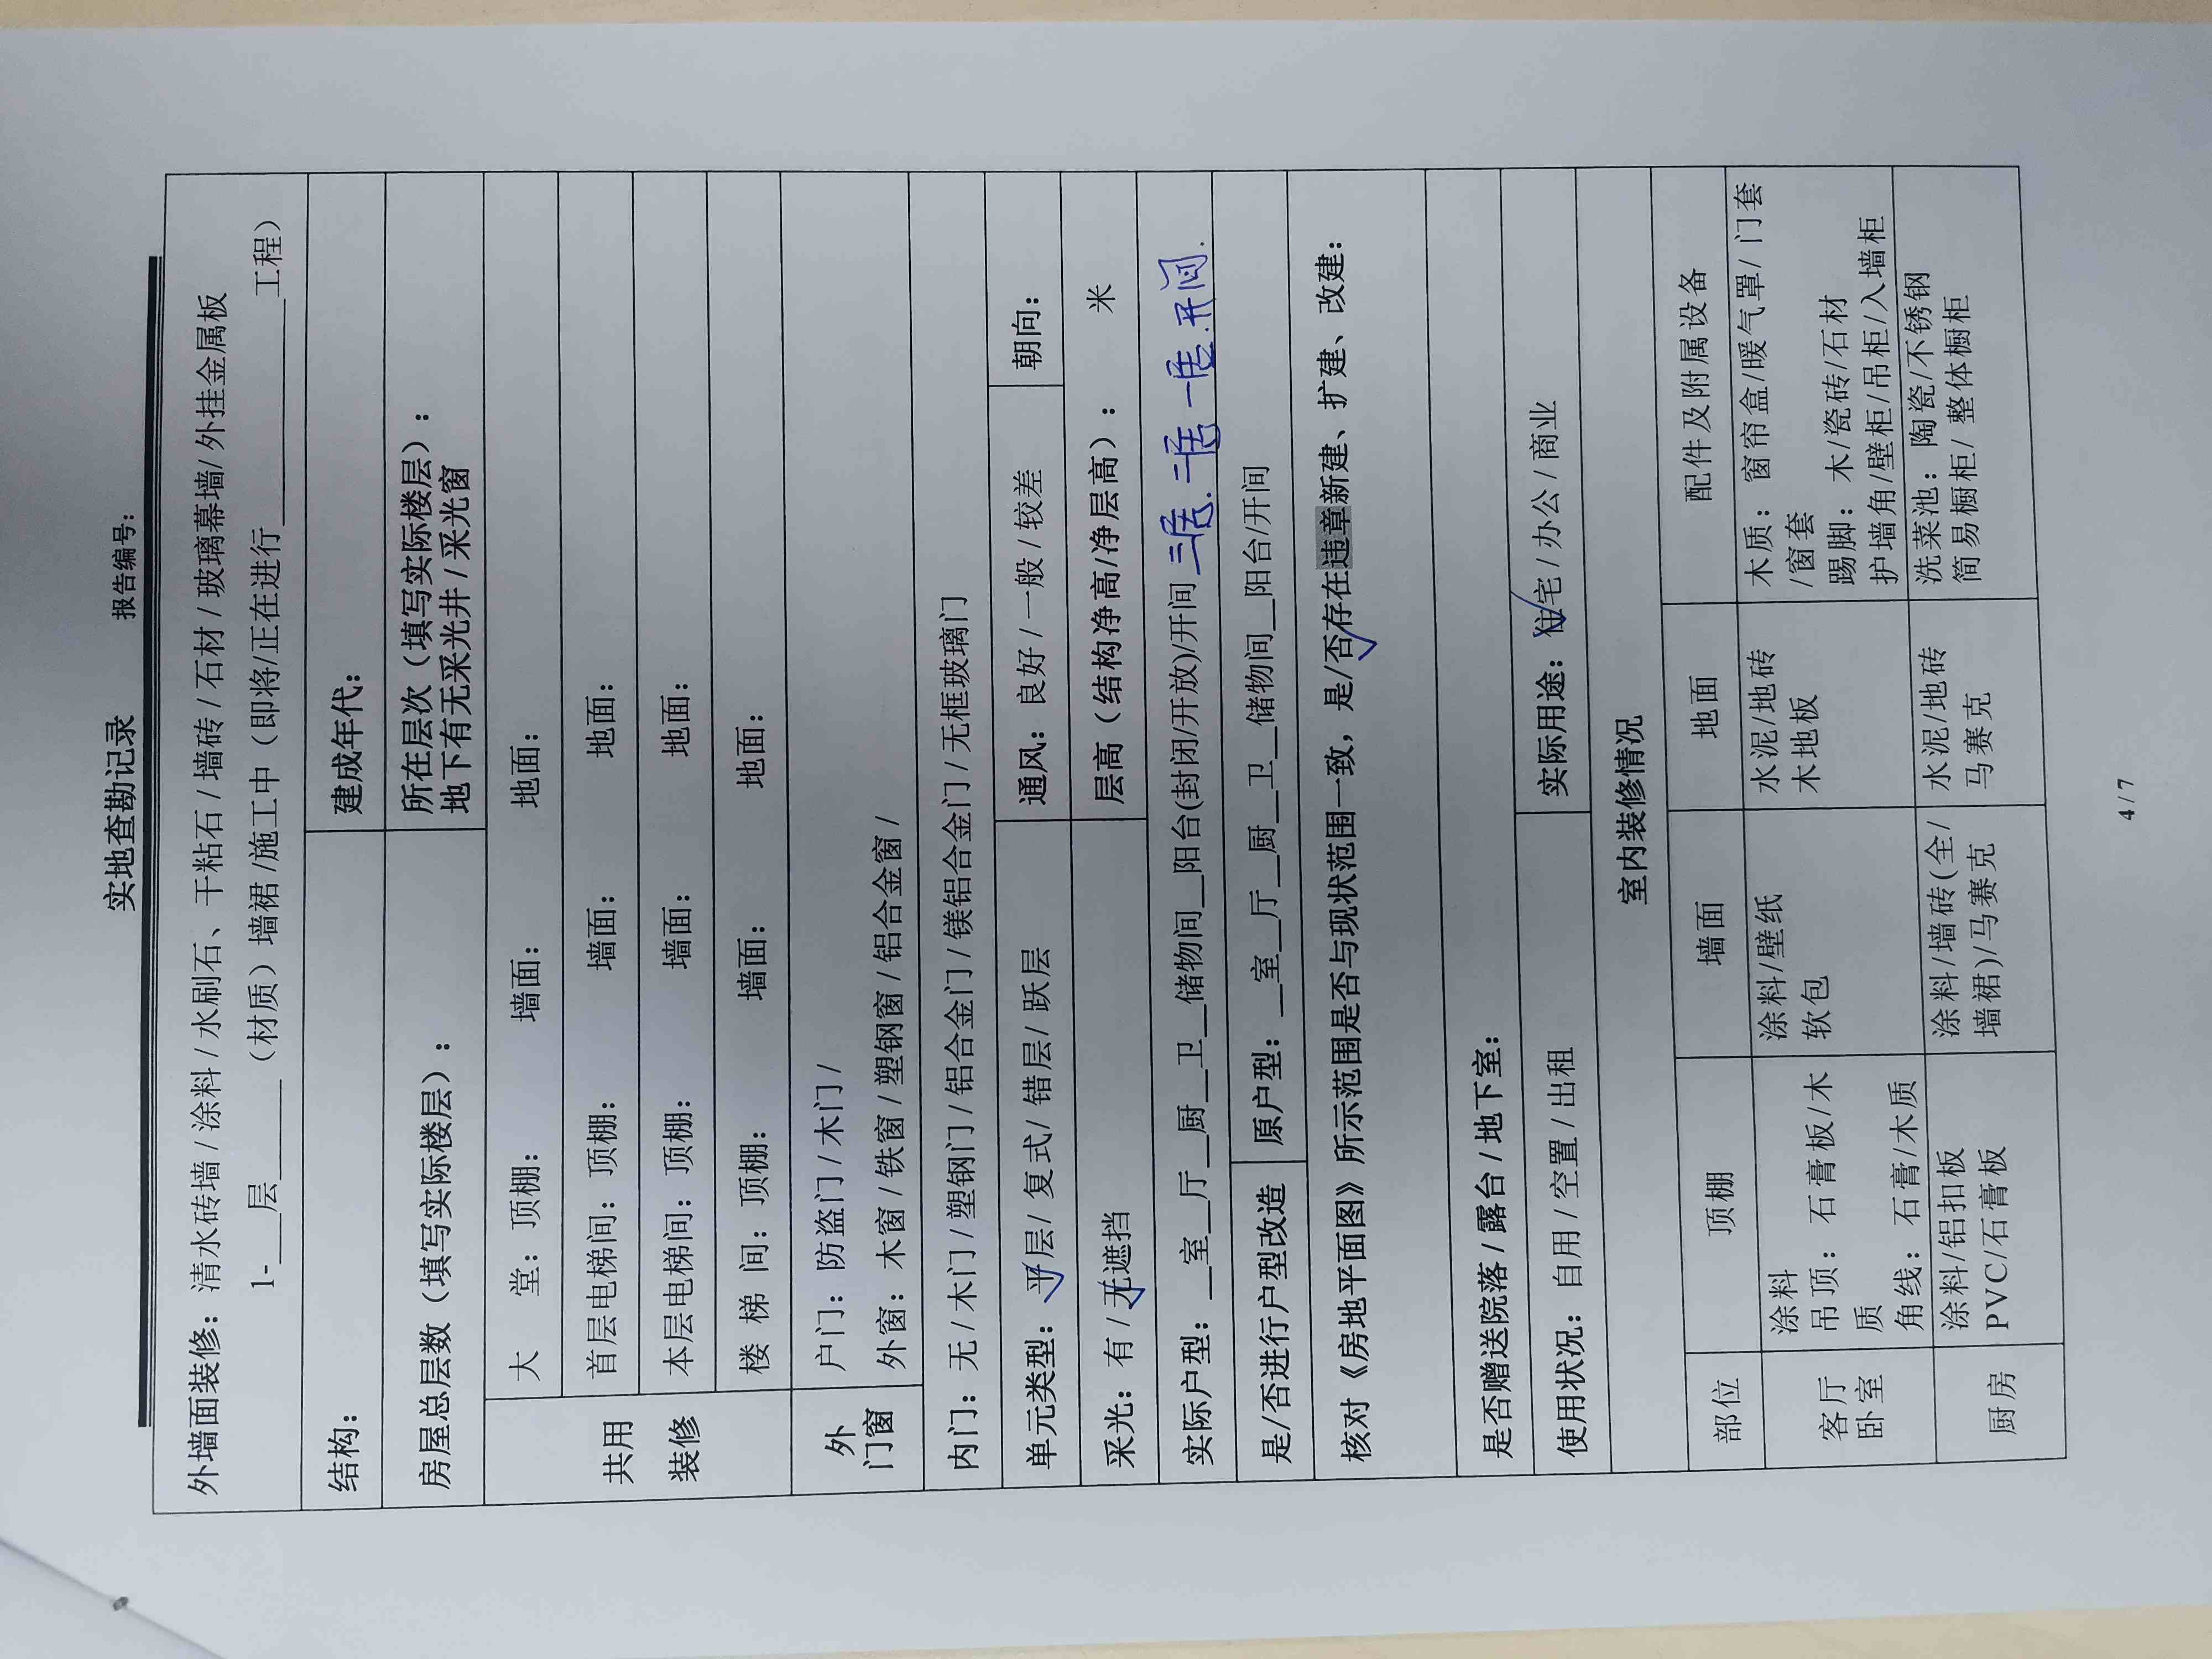 实地查勘记录 报告编号：
外墙面装修：清水砖墙/涂料/水刷石、干粘石/墙砖/石材/玻璃幕墙/外挂金属板
1-__层______（材质）墙裙/施工中（即将/正在进行____________工程）
结构： 建成年代：
房屋总层数（填写实际楼层）： 所在层次（填写实际楼层）：
地下有无采光井/采光窗
共用
装修
大 堂：顶棚： 墙面： 地面：
首层电梯间：顶棚： 墙面： 地面：
本层电梯间：顶棚： 墙面： 地面：
楼 梯 间：顶棚： 墙面： 地面：
外
门窗
户门：防盗门/木门/
外窗：木窗/铁窗/塑钢窗/铝合金窗/
内门：无/木门/塑钢门/铝合金门/镁铝合金门/无框玻璃门
单元类型：平层/复式/错层/跃层 通风：良好/一般/较差 朝向：
采光：有/无遮挡 层高（结构净高/净层高）： 米
实际户型：__室__厅__厨__卫__储物间__阳台(封闭/开放)/开间 三居.二居 一居.开间.
是/否进行户型改造 原户型：__室__厅__厨__卫__储物间__阳台/开间
核对《房地平面图》所示范围是否与现状范围一致，是/否存在违章新建、扩建、改建：
是否赠送院落/露台/地下室：
使用状况：自用/空置/出租 实际用途：住宅/办公/商业
室内装修情况
部位 顶棚 墙面 地面 配件及附属设备
客厅
卧室
涂料
吊顶：石膏板/木
质
角线：石膏/木质
涂料/壁纸
软包
水泥/地砖
木地板
木质：窗帘盒/暖气罩/门套
/窗套
踢脚：木/瓷砖/石材
护墙角/壁柜/吊柜/入墙柜
厨房
涂料/铝扣板
PVC/石膏板
涂料/墙砖(全/
墙裙)/马赛克
水泥/地砖
马赛克
洗菜池：陶瓷/不锈钢
简易橱柜/整体橱柜
4/7